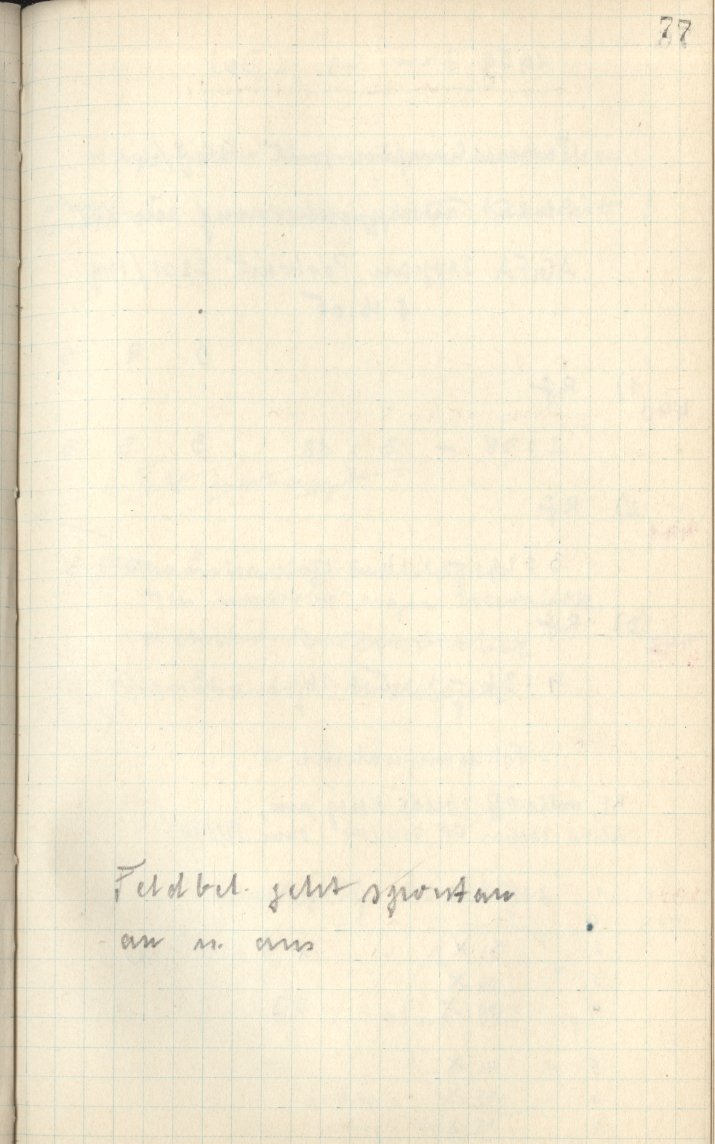 77
Feldbel. geht spontan
an u. aus